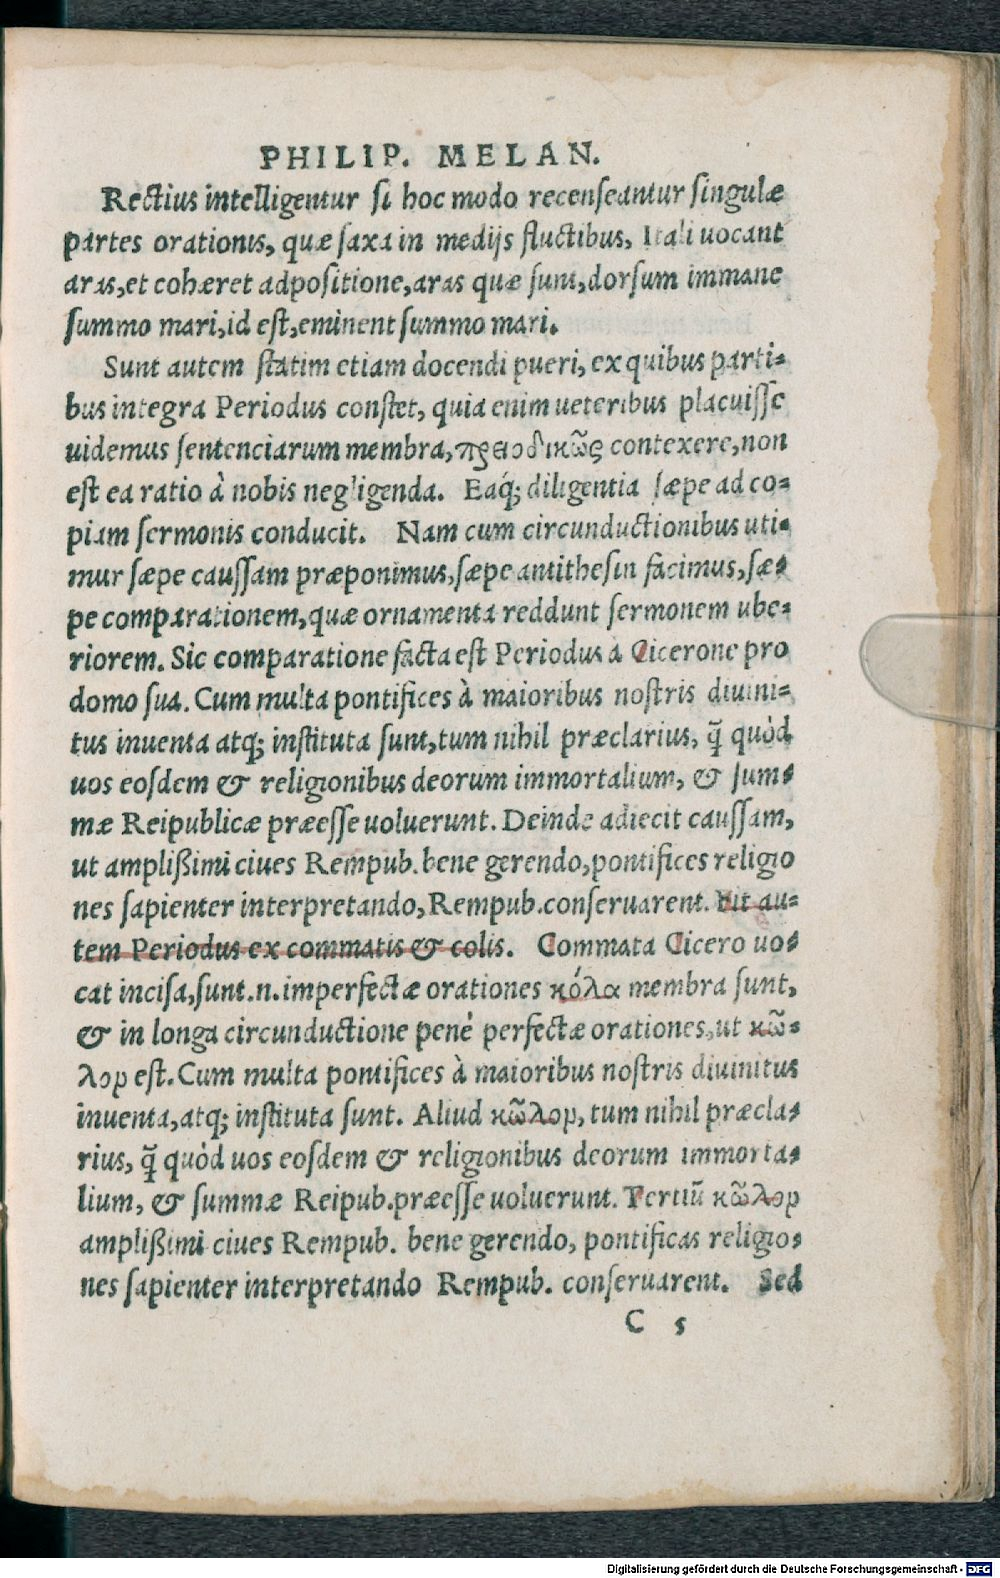 PHILIP. MELAN.
Rectius intelligentur si hoc modo recenseantur singulæ
partes orationis, quæ saxa in medijs fluctibus, Itali uocant
aras, et cohæret adpositione, aras quæ sunt, dorsum immane
summo mari, id est, eminent summo mari.
Sunt autem statim etiam docendi pueri, ex quibus parti-
bus integra Periodus constet, quia enim ueteribus placuisse
uidemus sentenciarum membra, περιοδικῶς contexere, non
est ea ratio à nobis negligenda. Eaq́; diligentia sæpe ad co-
piam sermonis conducit. Nam cum circunductionibus uti-
mur sæpe caussam præponimus, sæpe antithesin facimus, sæ-
pe comparationem, quæ ornamenta reddunt sermonem ube-
riorem. Sic comparatione facta est Periodus à Cicerone pro
domo sua. Cum multa pontifices à maioribus nostris diuini-
tus inuenta atq; instituta sunt, tum nihil præclarius, q̃ quòd
uos eosdem & religionibus deorum immortalium, & sum-
mæ Reipublicæ præesse uoluerunt. Deinde adiecit caussam,
ut amplißimi ciues Rempub. bene gerendo, pontifices religio
nes sapienter interpretando, Rempub. conseruarent. Fit au-
tem Periodus ex commatis & colis. Commata Cicero uo-
cat incisa, sunt .n. imperfectæ orationes κόλα membra sunt,
& in longa circunductione penè perfectæ orationes, ut κῶ-
λον est. Cum multa pontifices à maioribus nostris diuinitus
inuenta, atq; instituta sunt. Aliud κῶλον, tum nihil præcla-
rius, q̃ quòd uos eosdem & religionibus deorum immorta-
lium, & summæ Reipub. præesse uoluerunt. Tertiũ κῶλον
amplißimi ciues Rempub. bene gerendo, pontificas religio-
nes sapienter interpretando Rempub. conseruarent. Sed
C 5
Digitalisierung gefördert durch die Deutsche Forschungsgemeinschaft - DFG